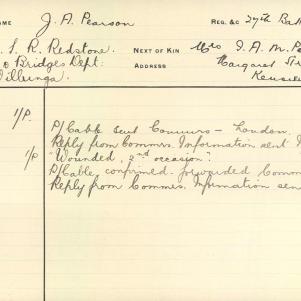 NAME J. A. Pearson REG. &C 27th Ba
S. R. Redstone. NEXT OF KIN Mrs J. A. M. P
Bridges Dept: ADDRESS Margaret Str
Willunga. Kensi
1/P. P/Cable sent Commrs – London.
Reply from Commrs. Information sent
1/P "Wounded, 2nd occasion".
P/Cable, confirmed. forwarded Comm
Reply from Commrs. Information sen